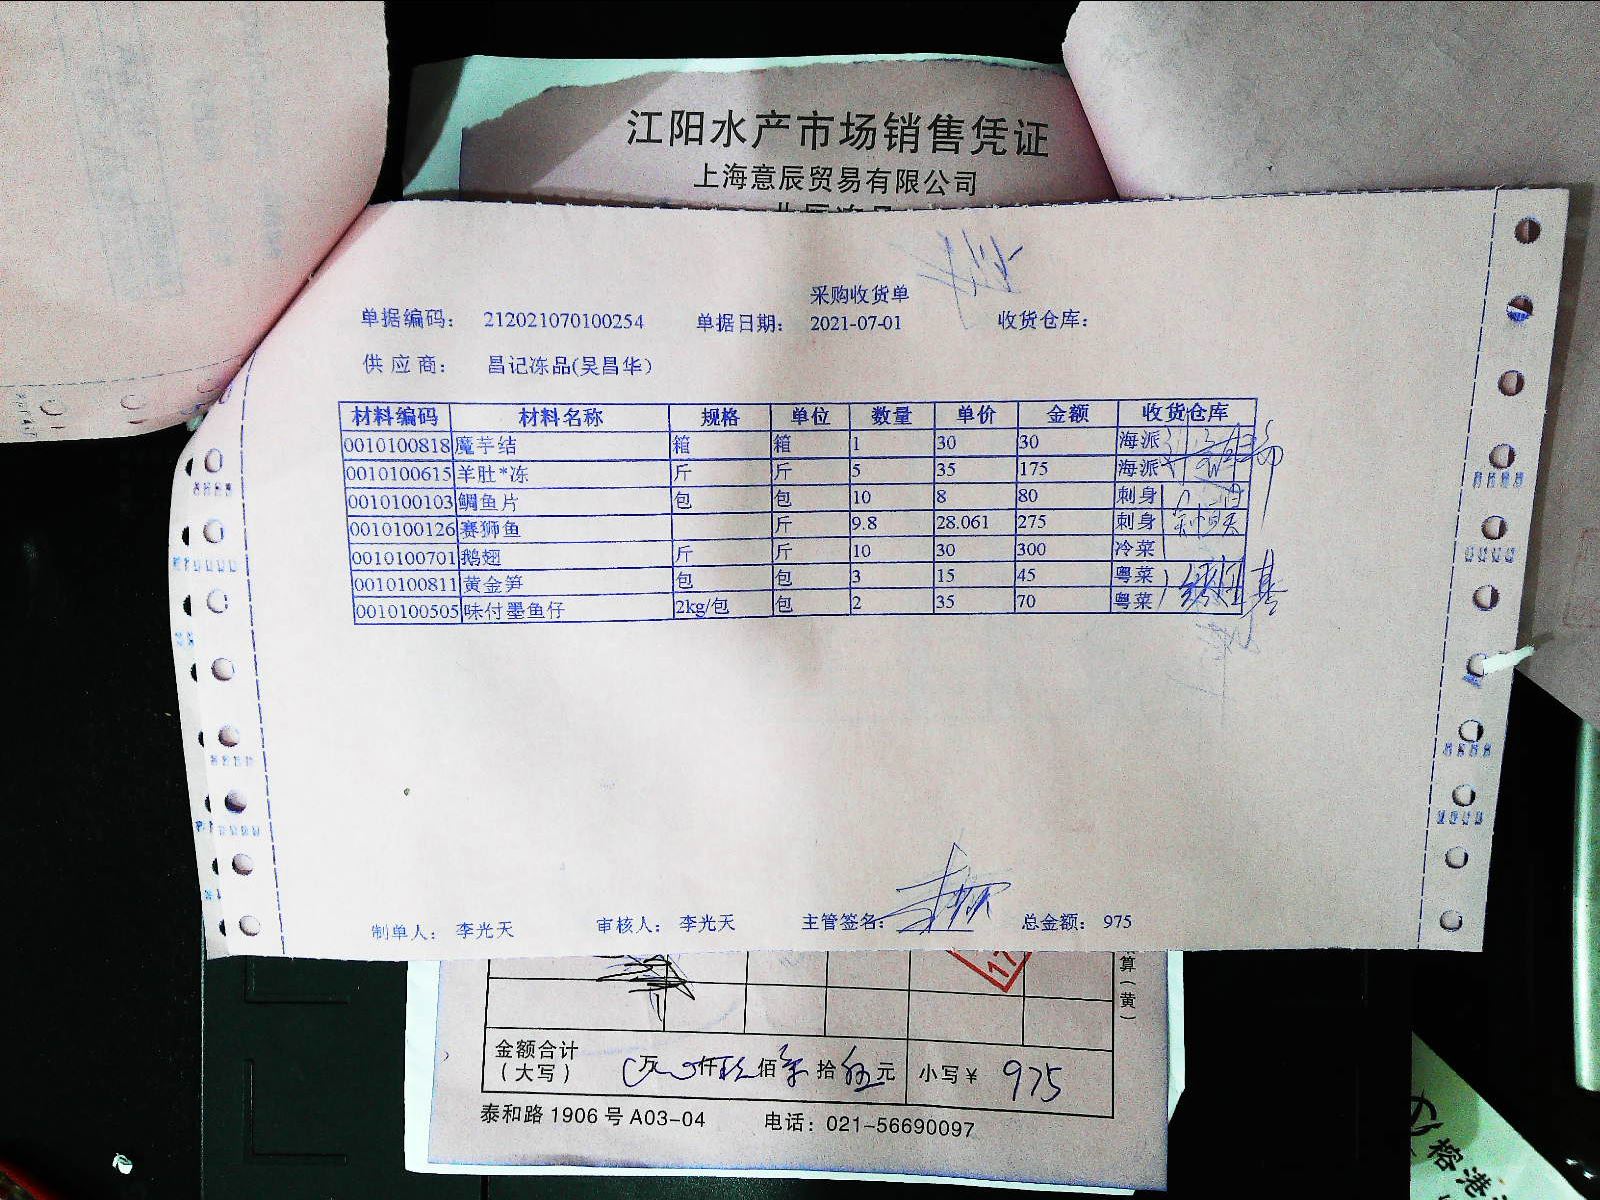 江阳水产市场销售凭证
上海意辰贸易有限公司
采购收货单
单据编码： 212021070100254 单据日期： 2021-07-01 收货仓库：
供 应 商： 昌记冻品(吴昌华)
材料编码 材料名称 规格 单位 数量 单价 金额 收货仓库
0010100818 魔芋结 箱 箱 1 30 30 海派
0010100615 羊肚*冻 斤 斤 5 35 175 海派
0010100103 鲷鱼片 包 包 10 8 80 刺身
0010100126 赛狮鱼 斤 9.8 28.061 275 刺身
0010100701 鹅翅 斤 斤 10 30 300 冷菜
0010100811 黄金笋 包 包 3 15 45 粤菜
0010100505 味付墨鱼仔 2kg/包 包 2 35 70 粤菜
制单人： 李光天 审核人： 李光天 主管签名： 总金额： 975
算（黄）
金额合计
（大写） 万 仟 玖 佰 柒 拾 伍 元 小写¥ 975
泰和路 1906 号 A03-04 电话：021-56690097
榕港